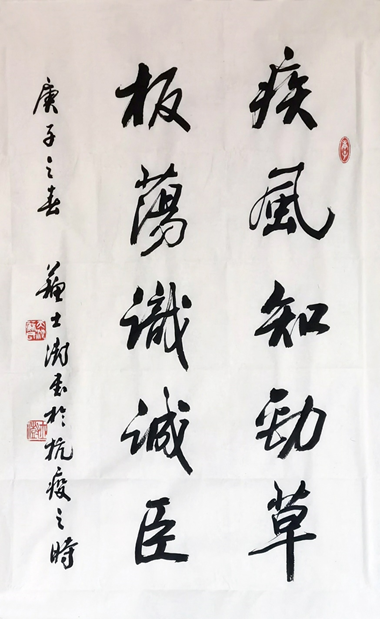 疾風知勁草
板蕩識誠臣
庚子之春
蘇士澍書於抗疫之時